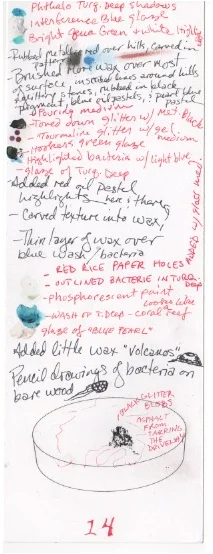 Phthalo Turq. Deep shadows
Interference Blue glaze
Bright Aqua Green + white
Rubbed metallic red over hills, carved in
pattern
Brushed hot wax over most
of surface, incised lines around hills
+ bacteria, rubbed in black
pigment, blue oil pastels, pearl blue
pastel
- Pouring medium
- Toned down glitter w/ mat. Black
- Tourmaline glitter w/ gel
medium
- Hookers green glaze
- Highlighted bacteria w/ light blue
- glaze of Turq. Deep
- Added red oil pastel
highlights here + there
- Carved texture into wax,
- Thin layer of wax over
blue wash / bacteria
- RED RICE PAPER HOLES
- OUTLINED BACTERIE IN TURQ. Deep
- phosphorescent paint
- WASH OF T. Deep - coral reef
glaze of "BLUE PEARL"
Added little wax "volcanos"
Pencil drawings of bacteria on
bare wood
BLACK GLITTER
BLOBS
ASPHALT
FROM
TARRING
THE
DRIVEWAY
14